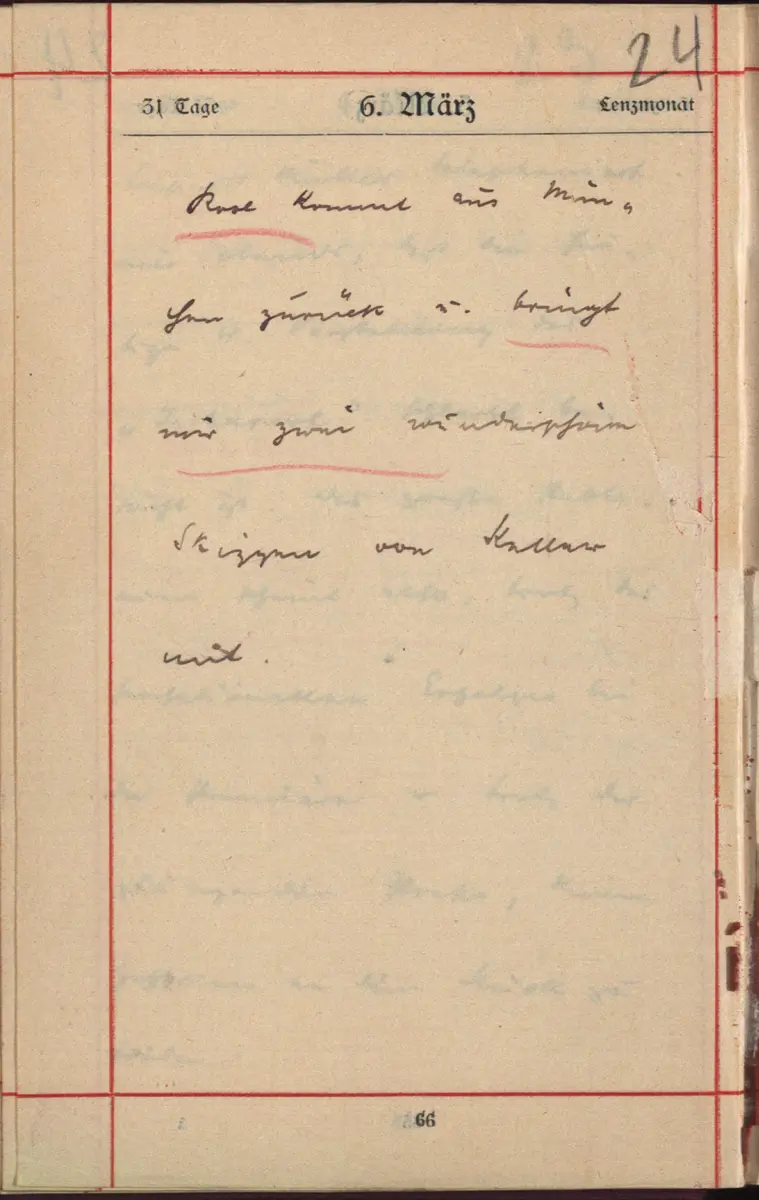 24
31 Tage 6. März Lenzmonat
Rosl kommt aus Mün„
chen zurück u. bringt
mir zwei wunderschöne
Skizzen von Keller
mit.
66